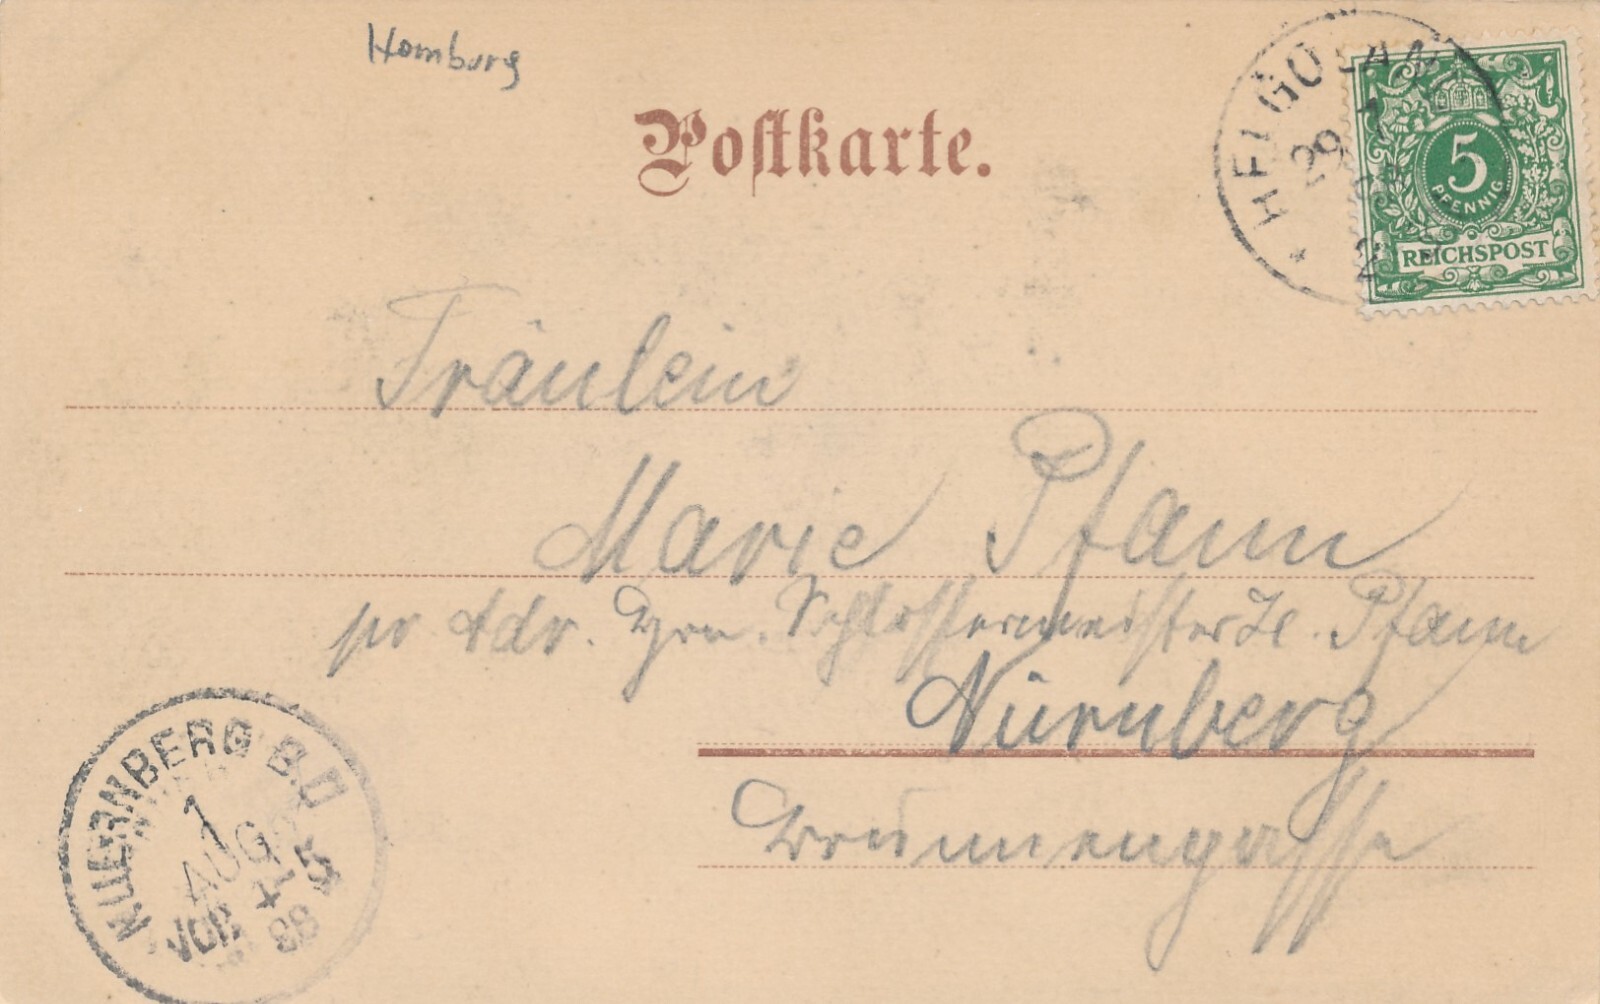 Homburg
Postkarte.
HELGOLAND
29 7
5
PFENNIG
REICHSPOST
Fräulein
Marie Pfann
pr Adr. Hrn. Schlossermeister H. Pfann
Nürnberg
Brunnengasse
NUERNBERG B.O
1
AUG
VOR
98